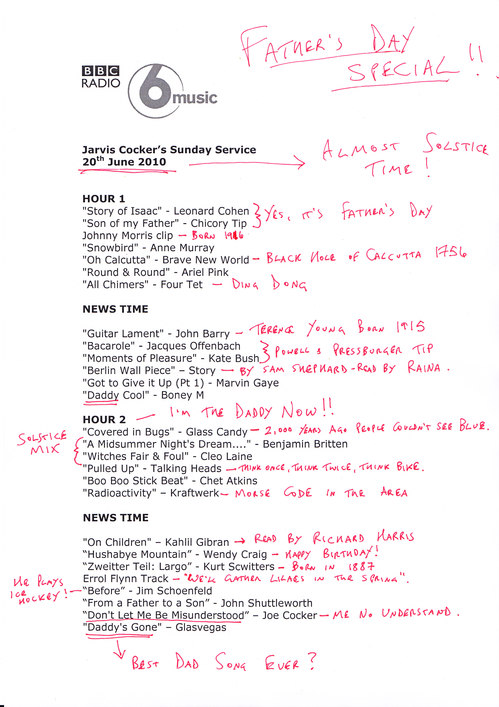 FATHER'S DAY
SPECIAL!!
BBC
RADIO
6 music
Jarvis Cocker's Sunday Service
20th June 2010
ALMOST SOLSTICE
TIME!
HOUR 1
"Story of Isaac" - Leonard Cohen
"Son of my Father" - Chicory Tip
YES, IT'S FATHER'S DAY
Johnny Morris clip - BORN 1916
"Snowbird" - Anne Murray
"Oh Calcutta" - Brave New World - BLACK HOLE OF CALCUTTA 1756
"Round & Round" - Ariel Pink
"All Chimers" - Four Tet - DING DONG
NEWS TIME
"Guitar Lament" - John Barry - TERENCE YOUNG BORN 1915
"Bacarole" - Jacques Offenbach
"Moments of Pleasure" - Kate Bush
POWELL & PRESSBURGER TIP
"Berlin Wall Piece" – Story - BY SAM SHEPHARD - READ BY RAINA.
"Got to Give it Up (Pt 1) - Marvin Gaye
"Daddy Cool" - Boney M
HOUR 2 - I'M THE DADDY NOW!!
"Covered in Bugs" - Glass Candy - 2,000 YEARS AGO PEOPLE COULDN'T SEE BLUE.
SOLSTICE
MIX
"A Midsummer Night's Dream...." - Benjamin Britten
"Witches Fair & Foul" - Cleo Laine
"Pulled Up" - Talking Heads - THINK ONCE, THINK TWICE, THINK BIKE.
"Boo Boo Stick Beat" - Chet Atkins
"Radioactivity" – Kraftwerk - MORSE CODE IN THE AREA
NEWS TIME
"On Children" – Kahlil Gibran → READ BY RICHARD HARRIS
"Hushabye Mountain" - Wendy Craig - HAPPY BIRTHDAY!
"Zweitter Teil: Largo" - Kurt Scwitters - BORN IN 1887
Errol Flynn Track - "WE'LL GATHER LILACS IN THE SPRING".
HE PLAYS
ICE
HOCKEY!
"Before" - Jim Schoenfeld
"From a Father to a Son" - John Shuttleworth
"Don't Let Me Be Misunderstood" – Joe Cocker - ME NO UNDERSTAND.
"Daddy's Gone" – Glasvegas
BEST DAD SONG EVER?